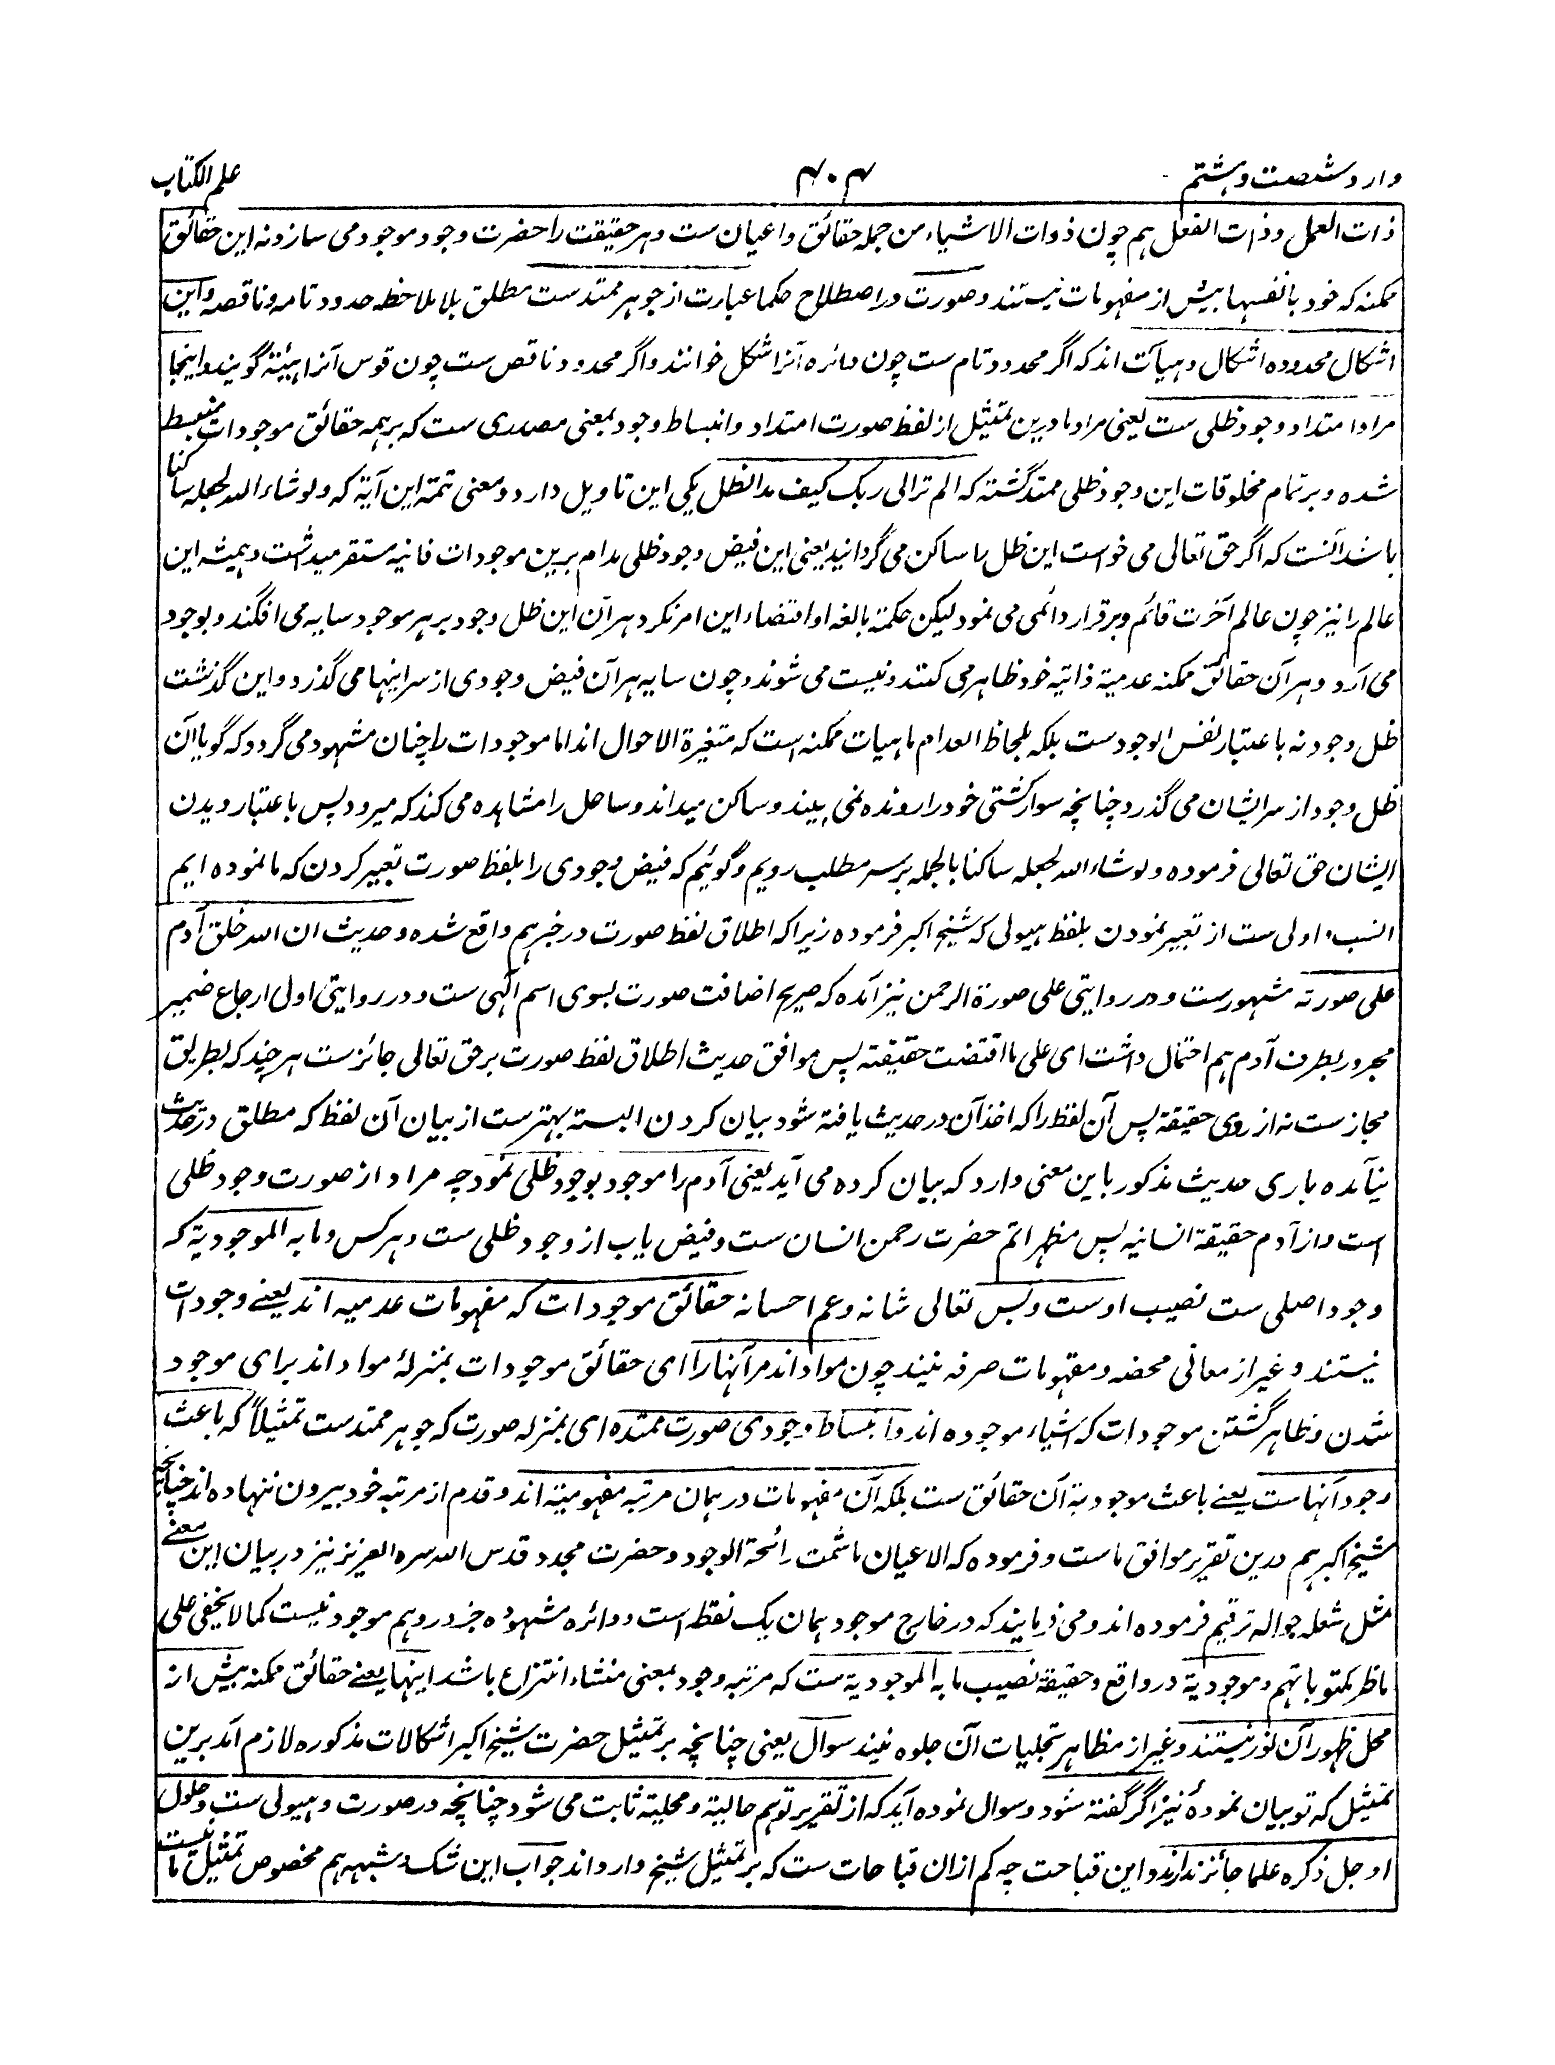 وارد شصت و هشتم
۴۰۴
علم الکتاب
ذات العمل و ذات الفعل هم چون ذوات الاشیاء من جمله حقائق و اعیان ست و هر حقیقت را حضرت وجود موجود می سازد نه این حقائق
ممکنه که خود بانفسها بیش از مفهومات نیستند و صورت در اصطلاح حکما عبارت از جوهر ممتد ست مطلق بلا ملاحظه حدود تامه و ناقصه و این
اشکال محدوده اشکال و هیآت اند که اگر محدود تام ست چون دائره آنرا شکل خوانند و اگر محدود ناقص ست چون قوس آنرا هیئة گویند و اینجا
مراد امتداد وجود ظلی ست یعنی مراد ما درین تمثیل از لفظ صورت امتداد و انبساط وجود بمعنی مصدری ست که بر همه حقائق موجودات منبسط
شده و بر تمام مخلوقات این وجود ظلی ممتد گشته که الم تر الی ربک کیف مد الظل یکی این تاویل دارد و معنی تتمه این آیة که و لو شاء الله لجعله ساکنا
باشد آنست که اگر حق تعالی می خواست این ظل را ساکن می گردانید یعنی این فیض وجود ظلی مدام برین موجودات فانیه مستقر میداشت و همیشه این
عالم را نیز چون عالم آخرت قائم و برقرار دائمی می نمود لیکن حکمة بالغه او اقتضاء این امر نکرد هر آن این ظل وجود بر هر موجود سایه می افگند و بوجود
می آرد و هر آن حقائق ممکنه عدمیة ذاتیه خود ظاهر می کنند و نیست می شوند و چون سایه هر آن فیض وجودی از سر اینها می گذرد و این گذشت
ظل وجود نه باعتبار نفس الوجود ست بلکه بلحاظ انعدام ماهیات ممکنه است که متغیرة الاحوال اند اما موجودات را چنان مشهود می گردد که گویا آن
ظل وجود از سر ایشان می گذرد چنانچه سوار کشتی خود را رونده نمی بیند و ساکن میداند و ساحل را مشاهده می کند که میرود پس باعتبار دیدن
ایشان حق تعالی فرموده و لو شاء الله لجعله ساکنا بالجمله بر سر مطلب رویم و گوئیم که فیض وجودی را بلفظ صورت تعبیر کردن که ما نموده ایم
انسب و اولی ست از تعبیر نمودن بلفظ هیولی که شیخ اکبر فرموده زیرا که اطلاق لفظ صورت در خبر هم واقع شده و حدیث ان الله خلق آدم
علی صورته مشهور ست و در روایتی علی صورة الرحمن نیز آمده که صریح اضافت صورت بسوی اسم الهی ست و در روایتی اولی ارجاع ضمیر
مجرور بطرف آدم هم احتمال داشت ای علی ما اقتضت حقیقته پس موافق حدیث اطلاق لفظ صورت بر حق تعالی جائز ست هر چند که بطریق
مجاز ست نه از روی حقیقة پس آن لفظ را که اخذ آن در حدیث یافته شود بیان کردن البسته بهتر ست از بیان آن لفظ که مطلق در حدیث
نیآمده باری حدیث مذکور باین معنی وارد که بیان کرده می آید یعنی آدم را موجود بوجود ظلی نمود چه مراد از صورت وجود ظلی
است و از آدم حقیقة انسانیه پس مظهر اتم حضرت رحمن انسان ست و فیض یاب از وجود ظلی ست و هر کس و ما به الموجودیة که
وجود اصلی ست نصیب اوست و بس تعالی شانه و عم احسانه حقائق موجودات که مفهومات عدمیه اند یعنے وجودات
نیستند و غیر از معانی محضه و مفهومات صرفه نیند چون مواد اند مر آنها را ای حقائق موجودات بمنزلهٔ مواد اند برای موجود
شدن و ظاهر گشتن موجودات که اشیاء موجوده اند و انبساط وجودی صورت ممتده ای بمنزله صورت که جوهر ممتد ست تمثیلاً که باعث
وجود آنهاست یعنے باعث موجودیة آن حقائق ست بلکه آن مفهومات در همان مرتبه مفهومیة اند و قدم از مرتبه خود بیرون ننهاده اند چنانچه
شیخ اکبر هم درین تقریر موافق ماست و فرموده که الاعیان ما شمت رائحة الوجود و حضرت مجدد قدس الله سره العزیز نیز در بیان این معنے
مثل شعله جواله ترقیم فرموده اند و می فرمایند که در خارج موجود همان یک نقطه است و دائره مشهوده جز در وهم موجود نیست کما لا یخفی علی
ناظر مکتوباتهم و موجودیة در واقع و حقیقة نصیب ما به الموجودیة ست که مرتبه وجود بمعنی منشاء انتزاع باشد اینها یعنے حقائق ممکنه بیش از
محل ظهور آن نور نیستند و غیر از مظاهر تجلیات آن جلوه نیند سوال یعنی چنانچه بر تمثیل حضرت شیخ اکبر اشکالات مذکوره لازم آمد برین
تمثیل که تو بیان نمودهٔ نیز اگر گفته شود و سوال نموده آید که از تقریر تو هم حالیة و محلیة ثابت می شود چنانچه در صورت و هیولی ست و حلول
او جل ذکره علما جائز ندارند و این قباحت چه کم ازان قباحات ست که بر تمثیل شیخ وارد اند جواب این شک و شبهه هم مخصوص تمثیل ما نیست